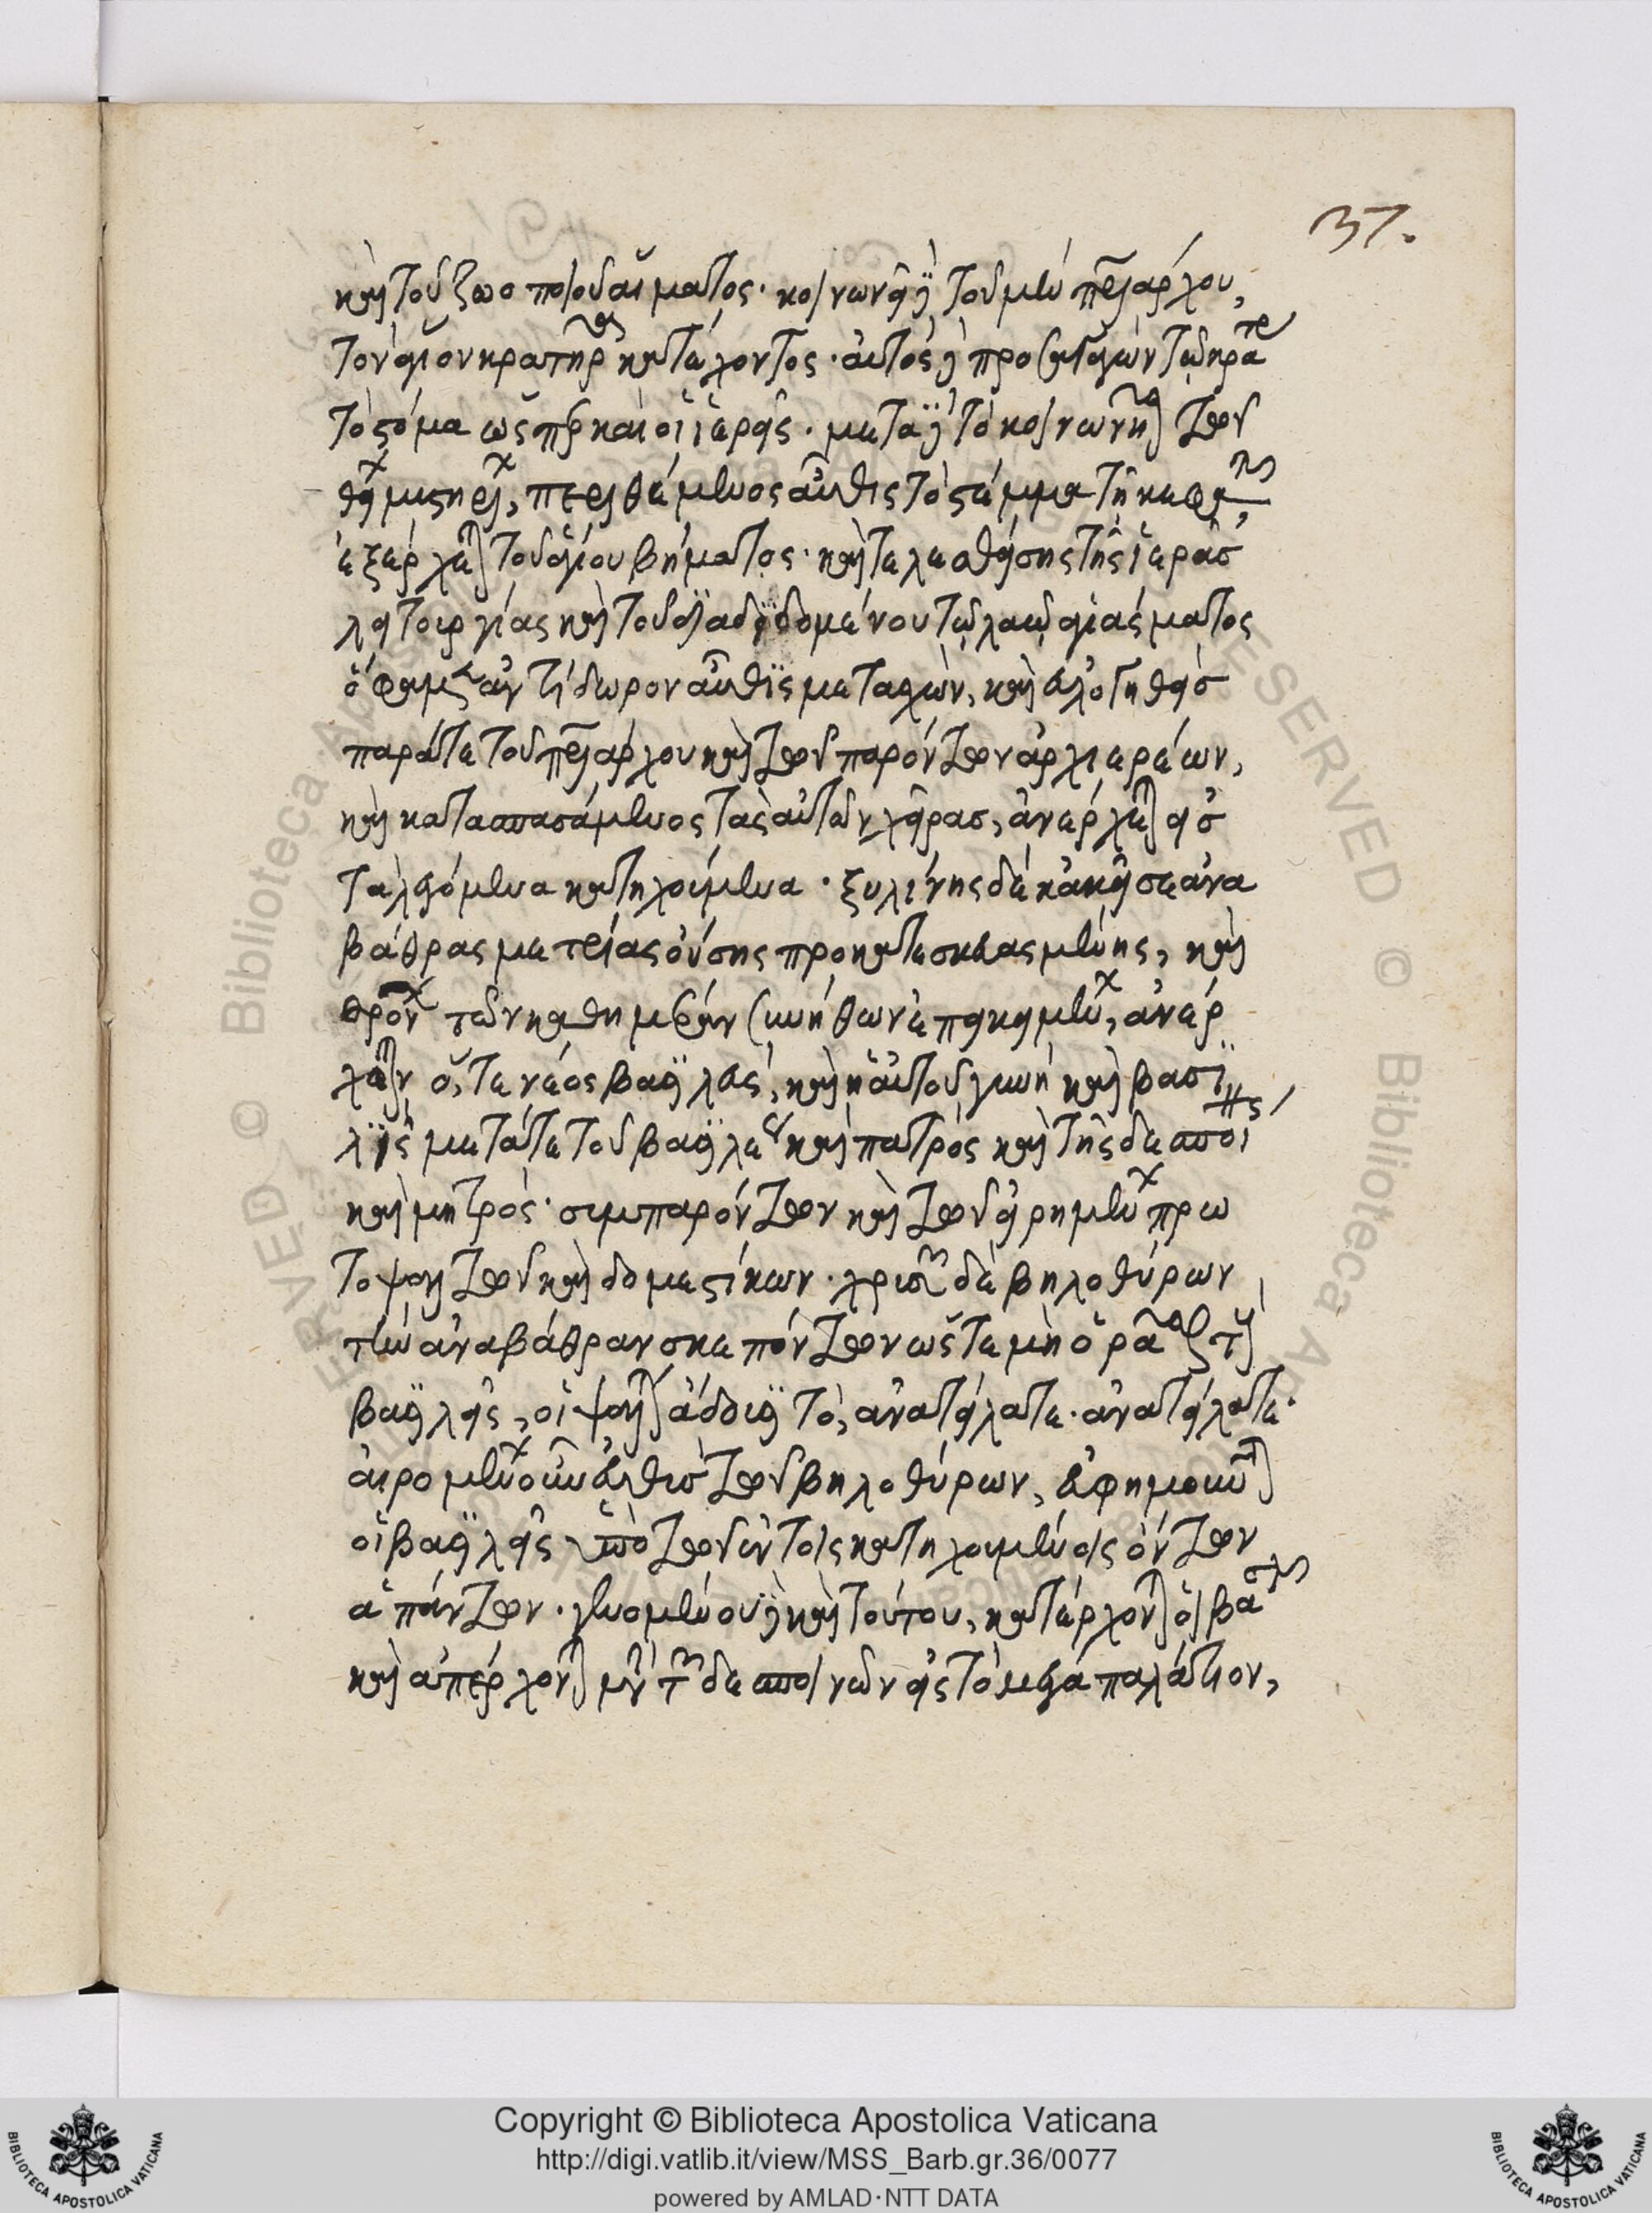 37.
καὶ τοῦ ζωοποιοῦ αἵματος· κοινωνεῖ δὲ τοῦ μὲν πατριάρχου,
τὸν ἅγιον κρατῆρα κατέχοντος· αὐτὸς δὲ προσαγαγὼν τῷ κρατῆρι
τὸ στόμα ὥσπερ καὶ οἱ ἱερεῖς· μετὰ δὲ τὸ κοινωνῆσαι τῶν
θείων μυστηρίων, περιθέμενος αὖθις τὸ στέμμα τῇ κεφαλῇ,
ἐξέρχεται τοῦ ἁγίου βήματος· καὶ τελεσθείσης τῆς ἱερᾶς
λειτουργίας καὶ τοῦ διαδιδομένου τῷ λαῷ ἁγιάσματος
ὅ φαμεν ἀντίδωρον αὖθις μετασχὼν, καὶ εὐλογηθεὶς
παρά τε τοῦ πατριάρχου καὶ τῶν παρόντων ἀρχιερέων,
καὶ κατασπασάμενος τὰς αὐτῶν χεῖρας, ἀνέρχεται εἰς
τὰ λεγόμενα κατηχούμενα· ξυλίνης δὲ κἀκεῖσε ἀνα
βάθρας μετρίας οὔσης προκατεσκευασμένης, καὶ
θρόνων τῶν καθημερινῶν συνήθων ἐπικειμένων, ἀνέρ
χεται ὅ, τε νέος βασιλεύς, καὶ ἡ αὐτοῦ γυνὴ καὶ βασι
λὶς μετά τε τοῦ βασιλέως καὶ πατρὸς καὶ τῆς δεσποίνης
καὶ μητρός· συμπαρόντων καὶ τῶν εἰρημένων πρω
τοψαλτῶν καὶ δομεστίκων· χρυσῶν δὲ βηλοθύρων
τὴν ἀναβάθραν σκεπόντων ὥστε μὴ ὁρᾶσθαι τοὺς
βασιλεῖς, οἱ ψάλται ᾄδουσι τό, ἀνατείλατε· ἀνατείλατε·
αἰρομένων οὖν εὐθὺς τῶν βηλοθύρων, εὐφημοῦνται
οἱ βασιλεῖς ὑπὸ τῶν ἐν τοῖς κατηχουμένοις ὄντων
ἁπάντων· γενομένου δὲ καὶ τούτου, κατέρχονται οἱ βασιλεῖς
καὶ ἀπέρχονται μετὰ τῶν δεσποινῶν εἰς τὸ μέγα παλάτιον,
Copyright © Biblioteca Apostolica Vaticana
http://digi.vatlib.it/view/MSS_Barb.gr.36/0077
powered by AMLAD·NTT DATA
BIBLIOTECA APOSTOLICA VATICANA
BIBLIOTECA APOSTOLICA VATICANA